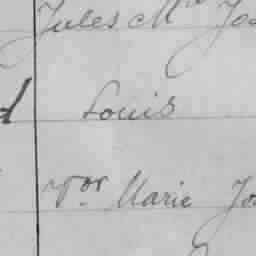 Jules M
d Louis
Vor Marie Jo